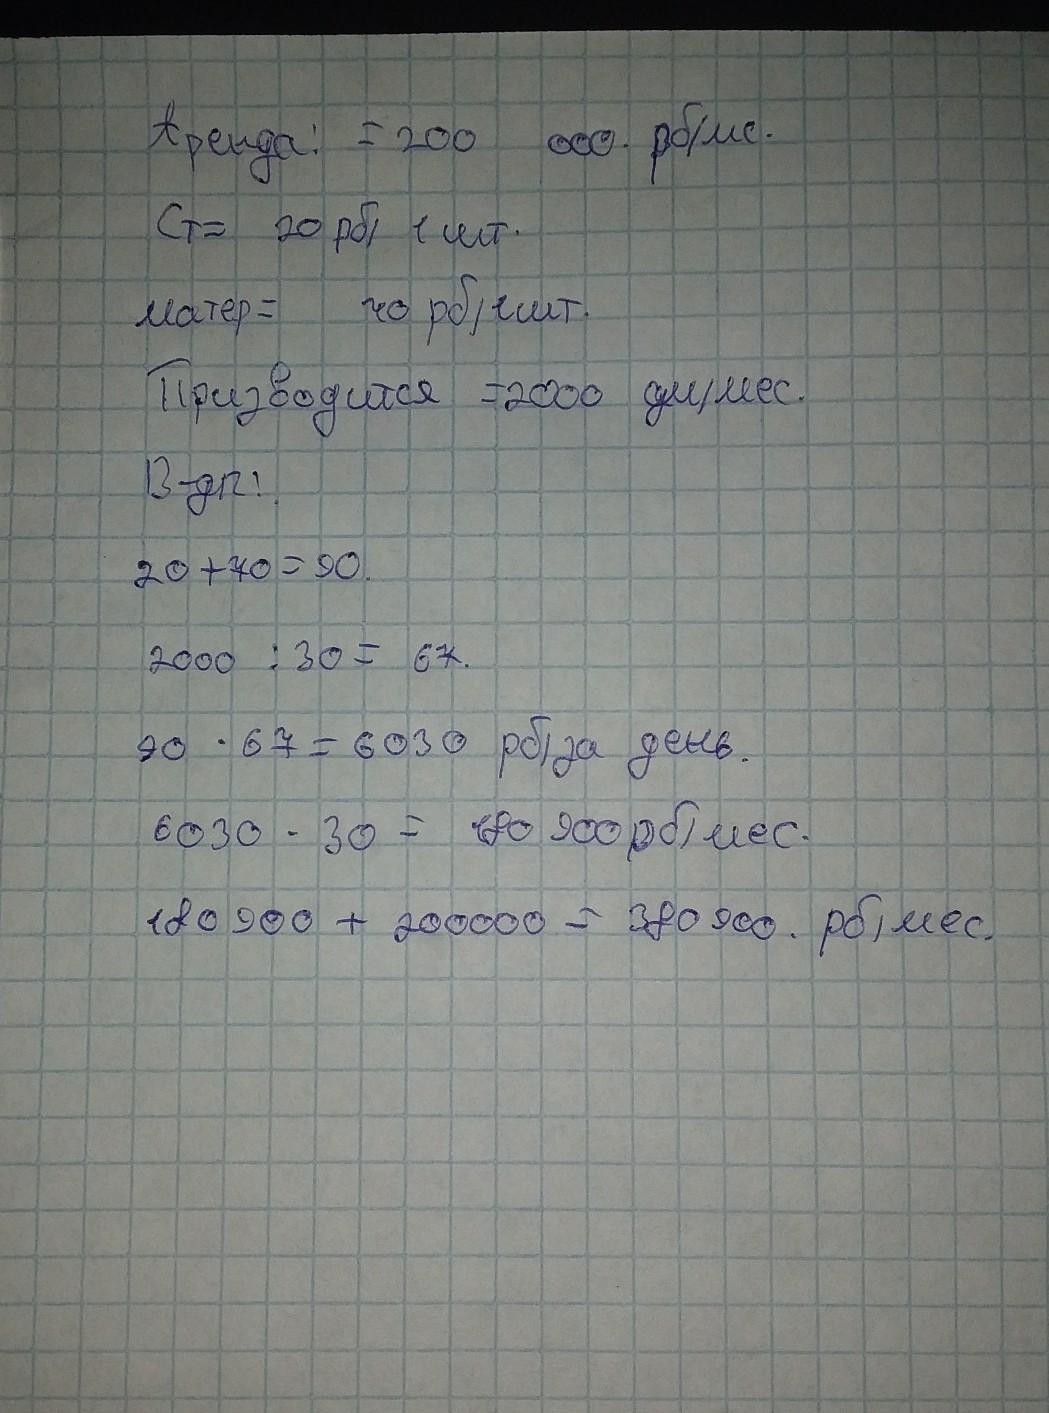 Аренда: = 200 000. рб/мс.
Ст= 20 рб/ 1 шт.
матер= 70 рб/1шт.
Призводится =2000 дм/мес.
В-дп:
20+70=90.
2000 : 30 = 67.
90 · 67 = 6030 рб/за день.
6030 · 30 = 180 900 рб/мес.
180 900 + 200000 = 380 900. рб/мес.